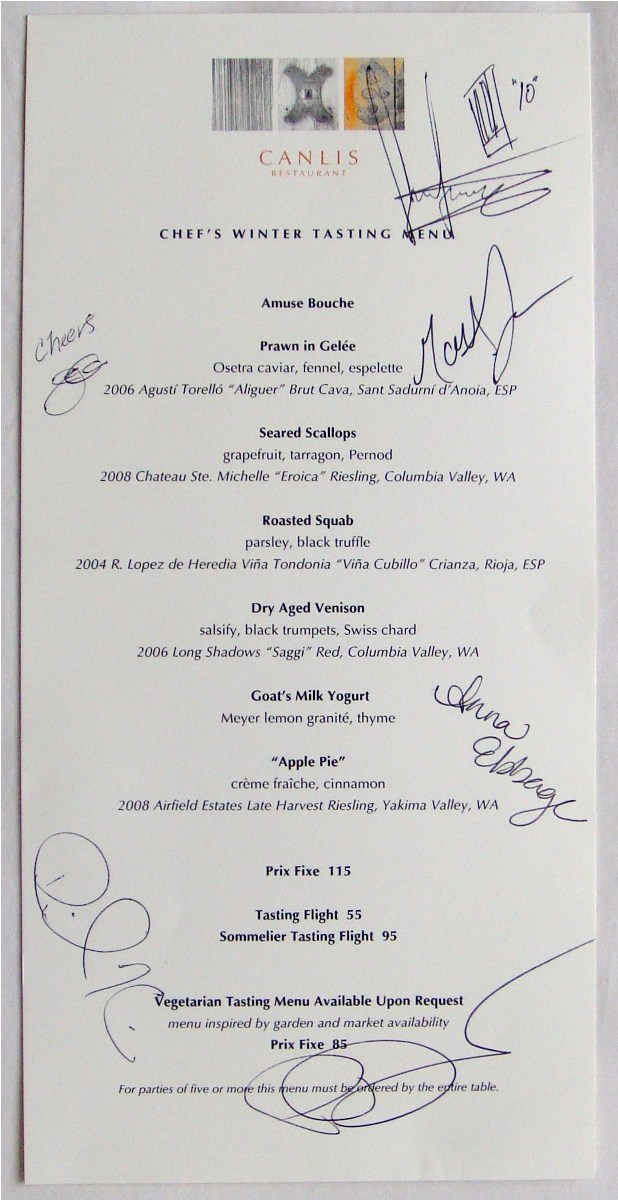 "10"
CANLIS
RESTAURANT
CHEF'S WINTER TASTING MENU
Amuse Bouche
Cheers
Prawn in Gelée
Osetra caviar, fennel, espelette
2006 Agustí Torelló “Aliguer” Brut Cava, Sant Sadurní d’Anoia, ESP
Seared Scallops
grapefruit, tarragon, Pernod
2008 Chateau Ste. Michelle “Eroica” Riesling, Columbia Valley, WA
Roasted Squab
parsley, black truffle
2004 R. Lopez de Heredia Viña Tondonia “Viña Cubillo” Crianza, Rioja, ESP
Dry Aged Venison
salsify, black trumpets, Swiss chard
2006 Long Shadows “Saggi” Red, Columbia Valley, WA
Goat’s Milk Yogurt
Meyer lemon granité, thyme
Anna
Ebbage
“Apple Pie”
crème fraîche, cinnamon
2008 Airfield Estates Late Harvest Riesling, Yakima Valley, WA
Prix Fixe 115
Tasting Flight 55
Sommelier Tasting Flight 95
Vegetarian Tasting Menu Available Upon Request
menu inspired by garden and market availability
Prix Fixe 85
For parties of five or more this menu must be ordered by the entire table.